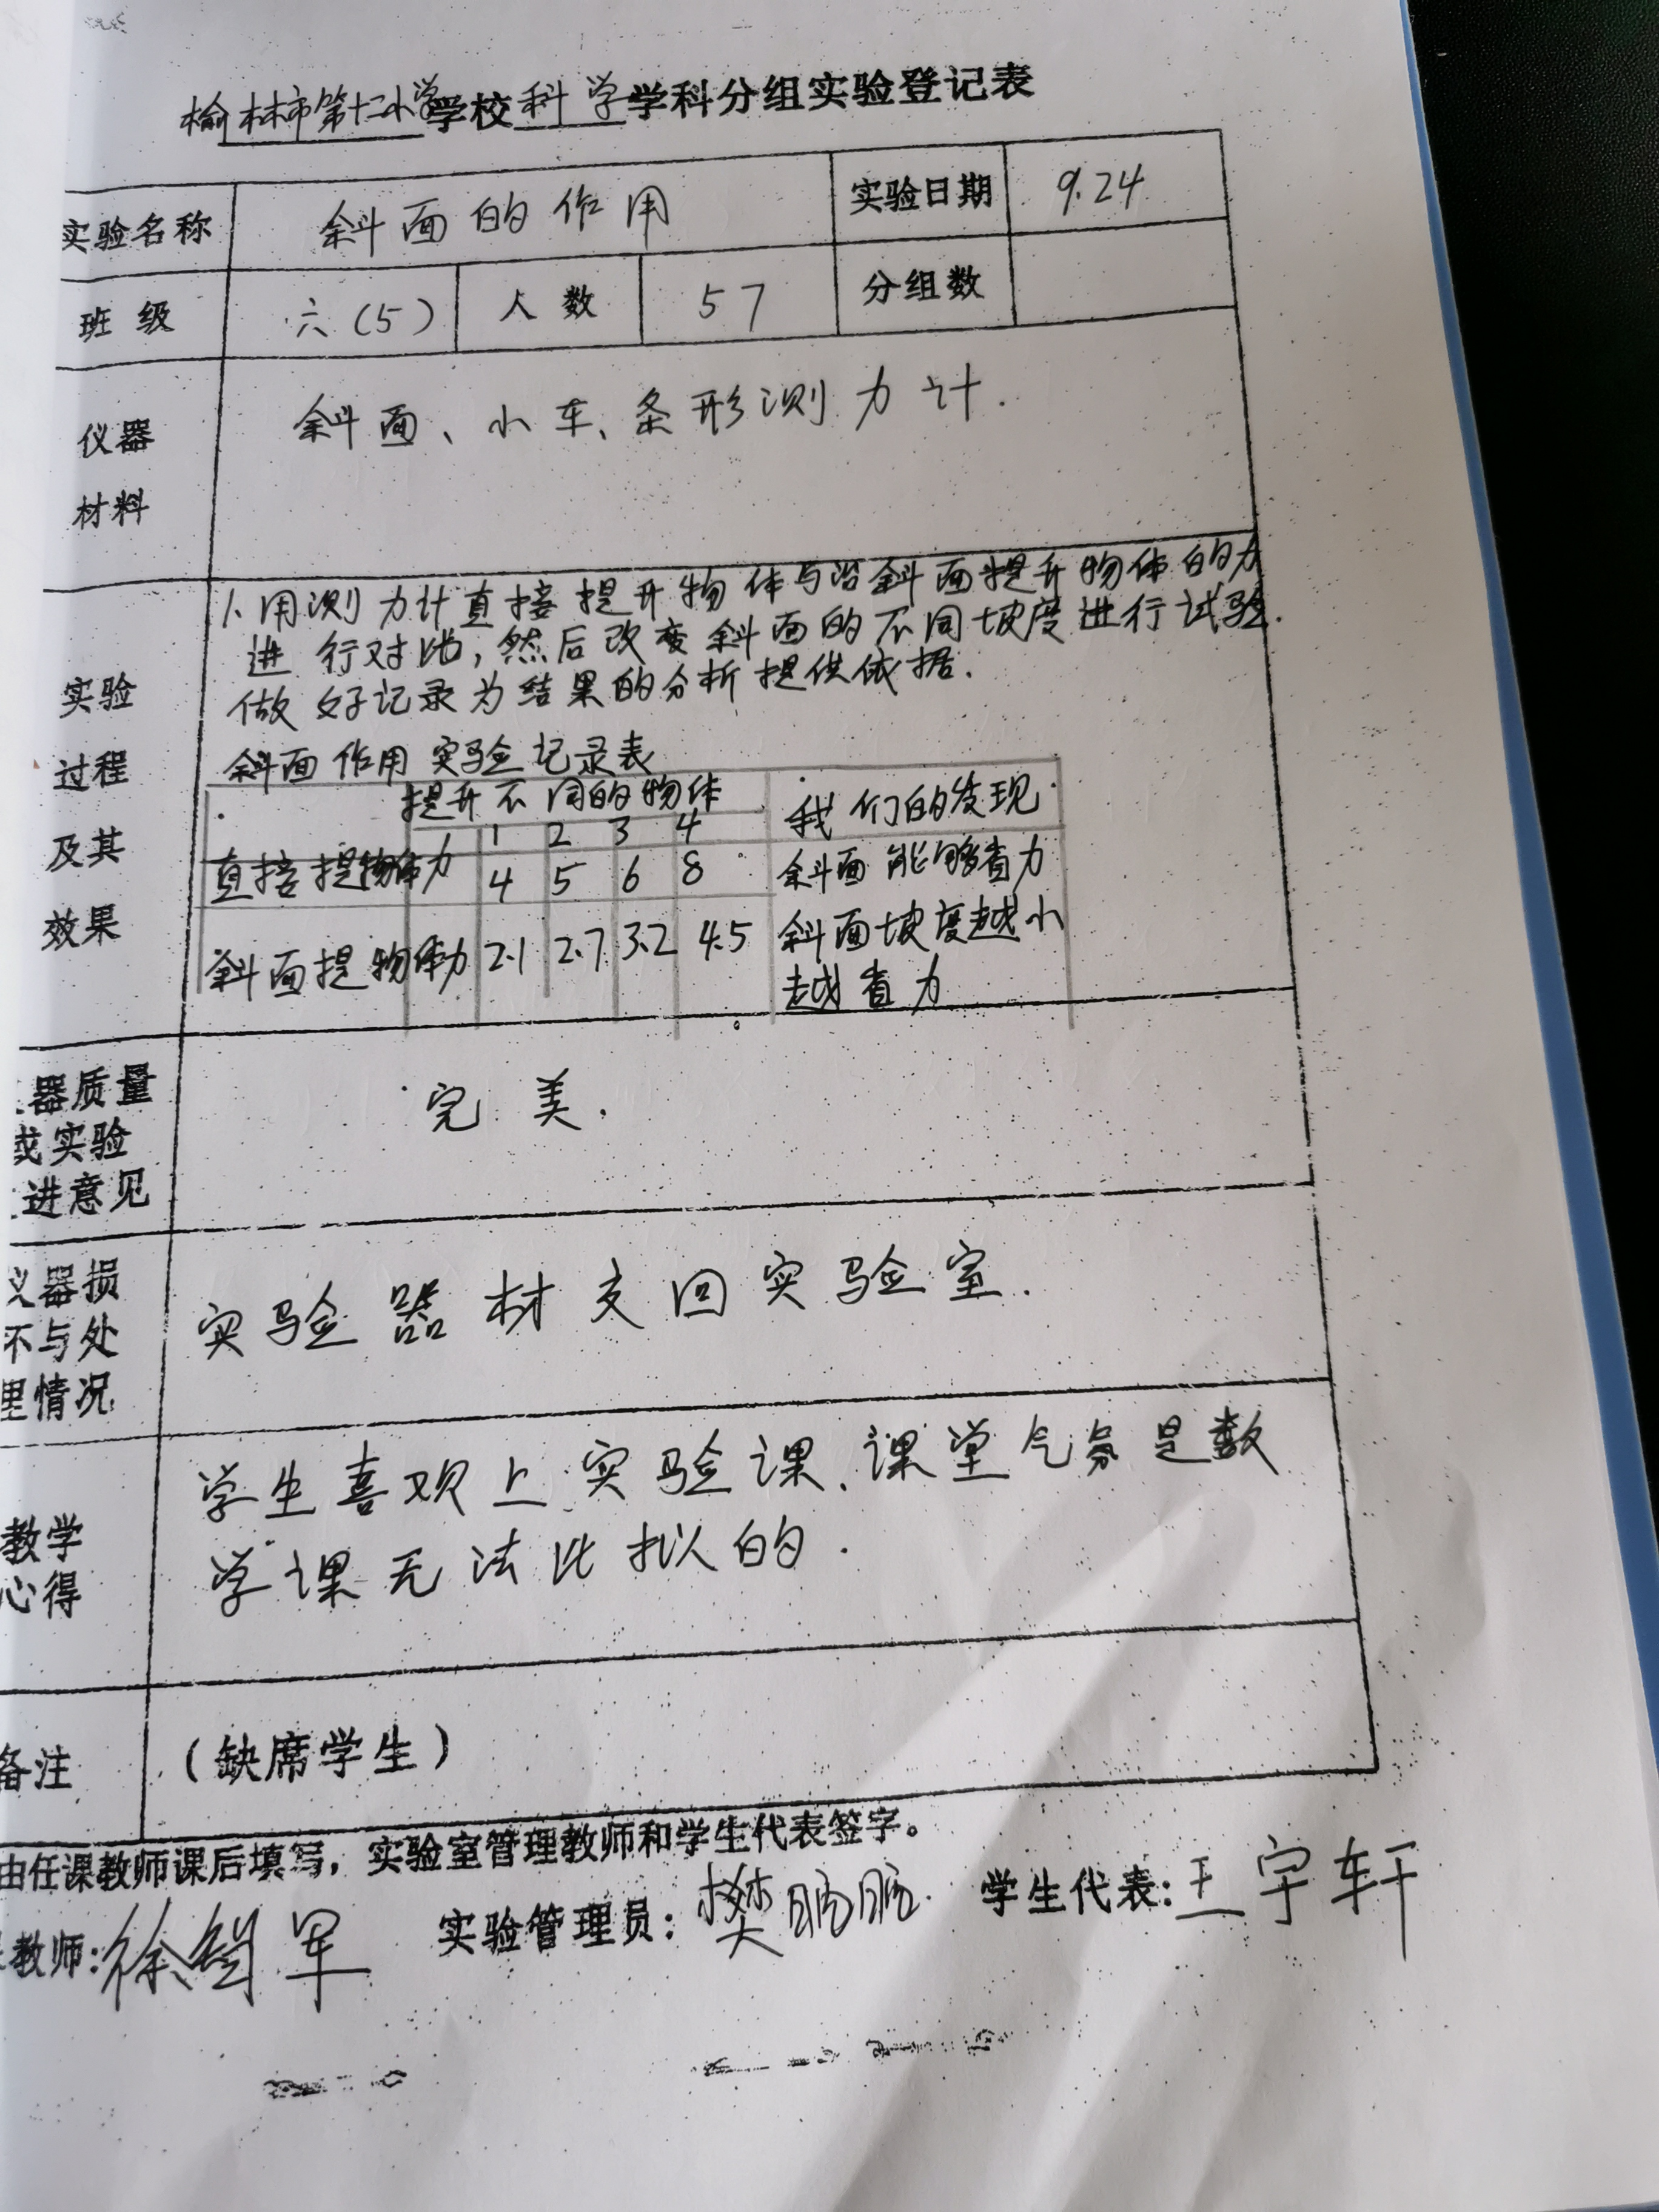 榆林市第十二小学学校科学学科分组实验登记表
实验名称 斜面的作用 实验日期 9.24
班级 六(5) 人数 57 分组数
仪器 斜面、小车、条形测力计.
材料
1.用测力计直接提升物体与沿斜面提升物体的力
进行对比,然后改变斜面的不同坡度进行试验.
实验 做好记录为结果的分析提供依据.
过程 斜面作用实验记录表
提升不同的物体 我们的发现
及其 1 2 3 4
直接提物体力 4 5 6 8 斜面能够省力
效果 斜面提物体力 2.1 2.7 3.2 4.5 斜面坡度越小
越省力
器质量
或实验 完美.
进意见
仪器损
坏与处 实验器材交回实验室.
理情况
学生喜欢上实验课.课堂气氛是数
教学 学课无法比拟的.
心得
备注 (缺席学生)
由任课教师课后填写,实验室管理教师和学生代表签字。
教师: 实验管理员:樊鹏鹏 学生代表:王宇轩